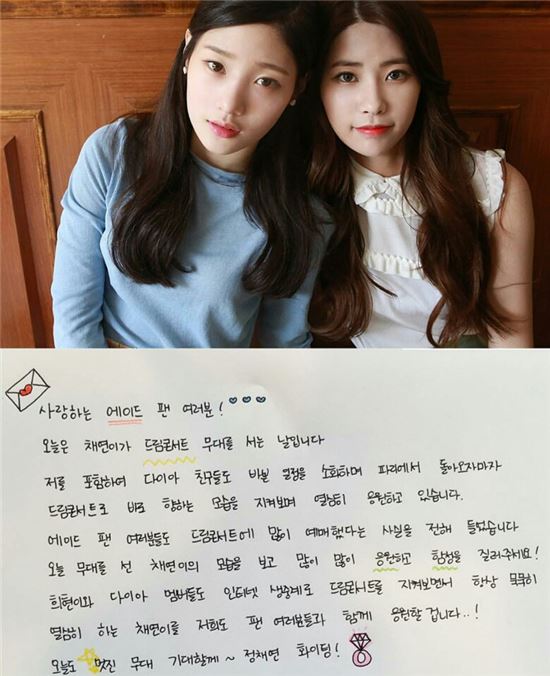 사랑하는 에이드 팬 여러분!
오늘은 채연이가 드림콘서트 무대를 서는 날입니다
저를 포함하여 다이아 친구들도 바쁜 일정을 소화하며 파리에서 돌아오자마자
드림콘서트로 바로 향하는 모습을 지켜보며 열심히 응원하고 있습니다.
에이드 팬 여러분들도 드림콘서트에 많이 예매했다는 사실을 전해 들었습니다
오늘 무대를 선 채연이의 모습을 보고 많이 많이 응원하고 함성을 질러주세요!
희현이와 다이아 멤버들도 인터넷 생중계로 드림콘서트를 지켜보면서 항상 묵묵히
열심히 하는 채연이를 저희도 팬 여러분들과 함께 응원할 겁니다..!
오늘도 멋진 무대 기대할게~ 정채연 화이팅!